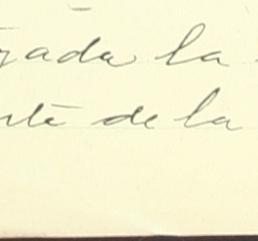 gada la
nte de la